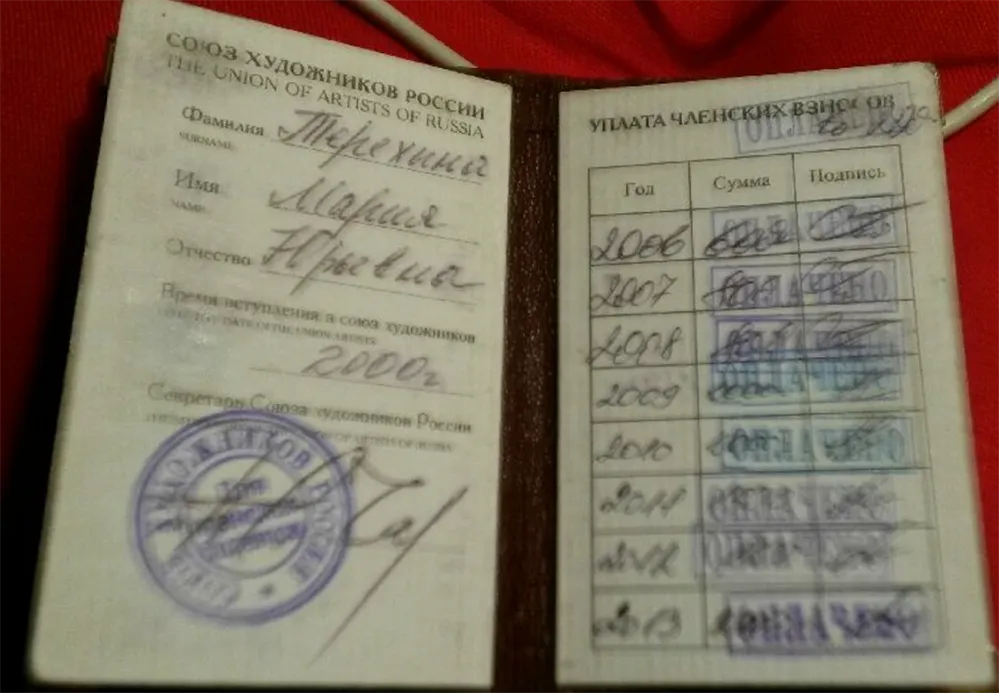 СОЮЗ ХУДОЖНИКОВ РОССИИ
THE UNION OF ARTISTS OF RUSSIA
Фамилия Терехина
SURNAME
Имя Мария
NAME
Отчество Юрьевна
Время вступления в союз художников
2000г
Секретарь Союза художников России
УПЛАТА ЧЛЕНСКИХ ВЗНОСОВ
ОПЛАЧЕНО
Год Сумма Подпись
2006 ОПЛАЧЕНО
2007 ОПЛАЧЕНО
2008 ОПЛАЧЕНО
2009 ОПЛАЧЕНО
2010 ОПЛАЧЕНО
2011 ОПЛАЧЕНО
2012 ОПЛАЧЕНО
2013 ОПЛАЧЕНО